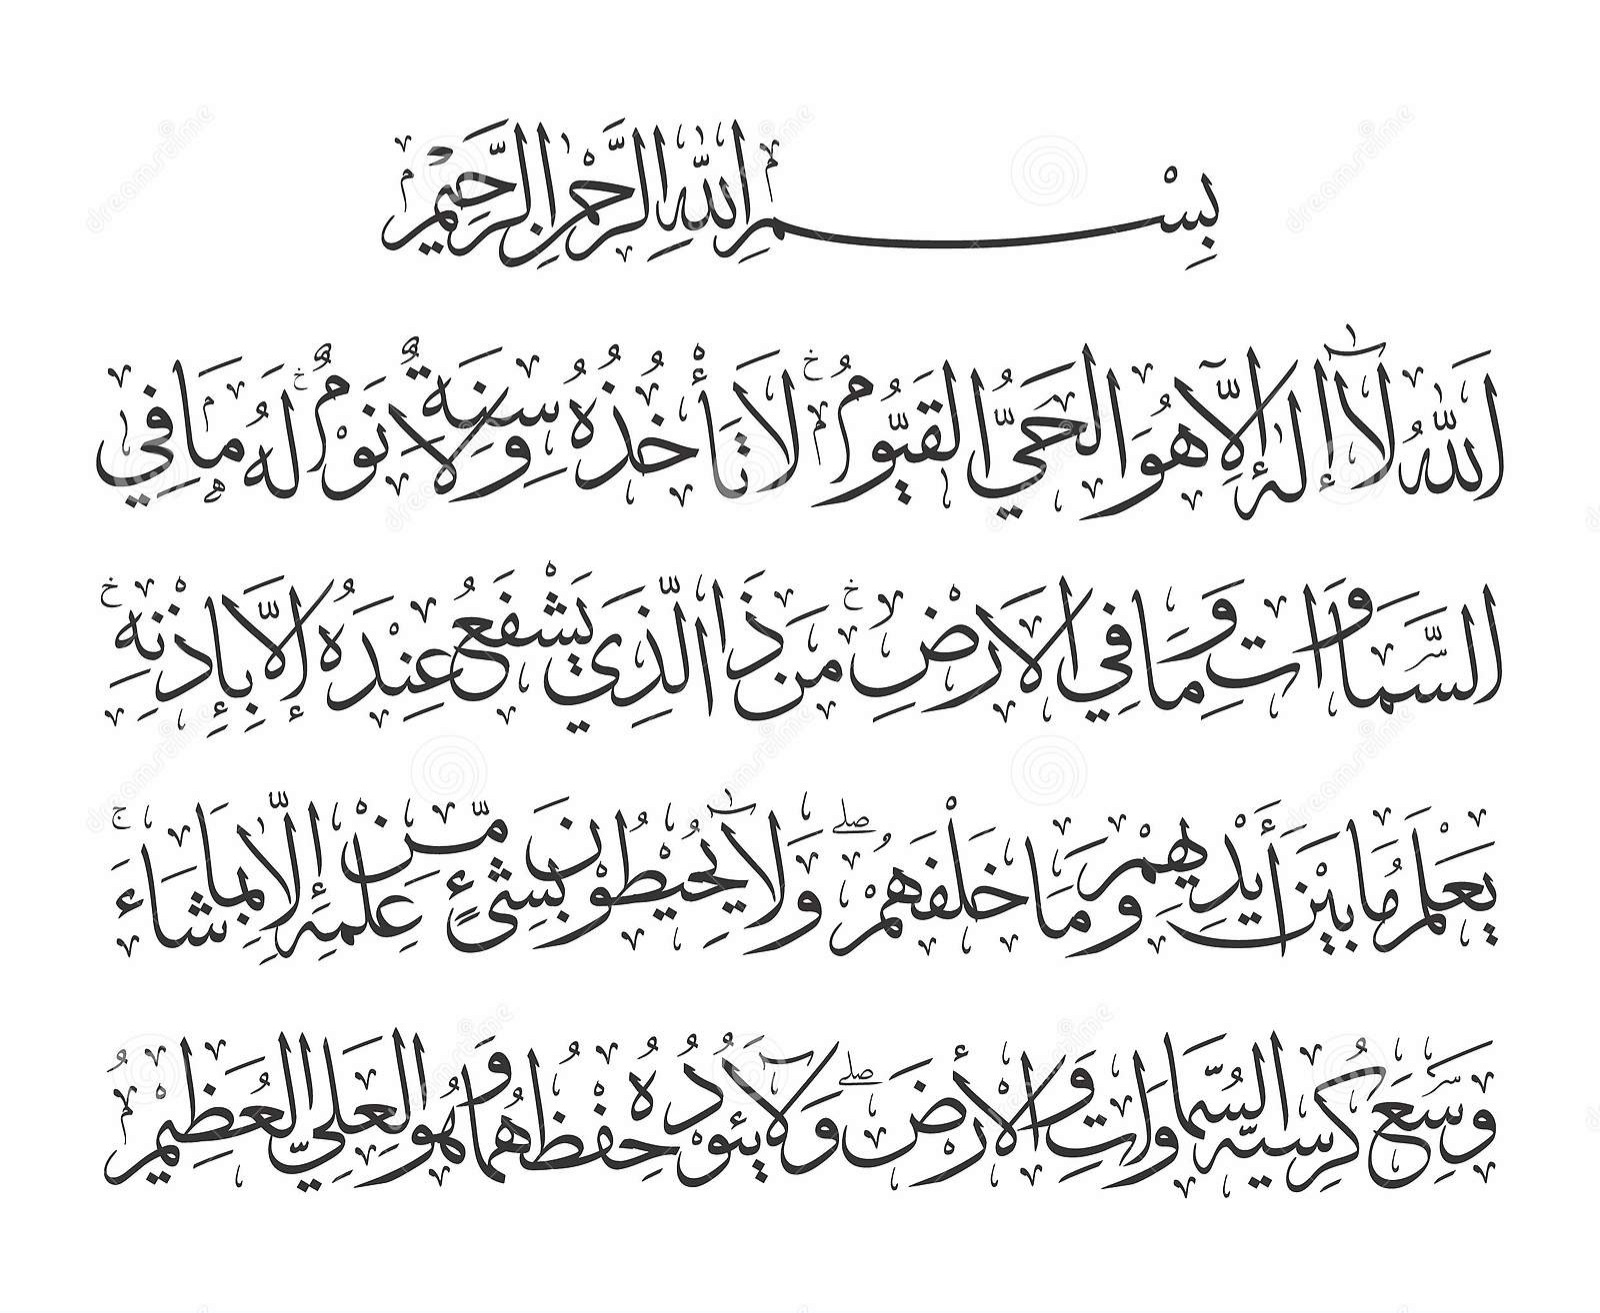 بِسْمِ اللهِ الرَّحْمٰنِ الرَّحِيْمِ
اَللهُ لَآ إِلٰهَ إِلَّا هُوَ الْحَيُّ الْقَيُّومُ لَا تَأْخُذُهُ سِنَةٌ وَلَا نَوْمٌ لَهُ مَا فِي
السَّمَاوَاتِ وَمَا فِي الْاَرْضِ مَنْ ذَا الَّذِي يَشْفَعُ عِنْدَهُ إِلَّا بِإِذْنِهِ
يَعْلَمُ مَا بَيْنَ أَيْدِيهِمْ وَمَا خَلْفَهُمْ وَلَا يُحِيطُونَ بِشَيْءٍ مِّنْ عِلْمِهِ إِلَّا بِمَا شَاءَ
وَسِعَ كُرْسِيُّهُ السَّمَاوَاتِ وَالْأَرْضَ وَلَا يَئُودُهُ حِفْظُهُمَا وَهُوَ الْعَلِيُّ الْعَظِيمُ
dreamstime